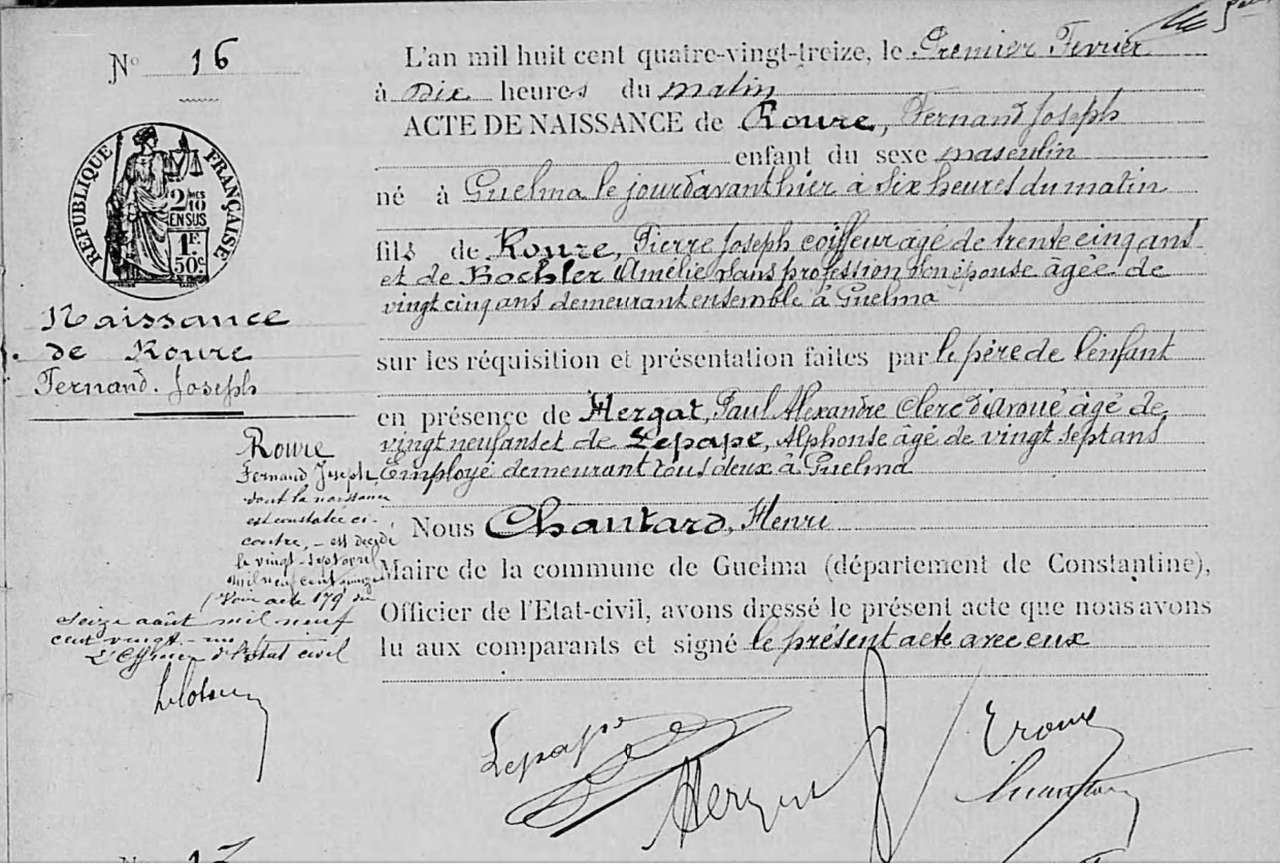 Nº 16
L'an mil huit cent quatre-vingt-treize, le Premier Fevrier
à Dix heures du matin
ACTE DE NAISSANCE de Roure, Fernand Joseph
enfant du sexe masculin
né à Guelma le jour d'avant hier à six heures du matin
fils de Roure, Pierre Joseph coiffeur âgé de trente cinq ans
et de Bochler Amélie sans profession son épouse âgée de
vingt cinq ans demeurant ensemble à Guelma
sur les réquisition et présentation faites par le père de l'enfant
en présence de Hergat, Paul Alexandre Clerc d'avoué âgé de
vingt neuf ans et de Lepape, Alphonse âgé de vingt sept ans
Employé demeurant tous deux à Guelma
Nous Chautard, Henri
Maire de la commune de Guelma (département de Constantine),
Officier de l'Etat-civil, avons dressé le présent acte que nous avons
lu aux comparants et signé le présent acte avec eux
REPUBLIQUE FRANÇAISE
2/10 EN SUS
1F.
50c
Naissance
de Roure
Fernand Joseph
Roure
Fernand Joseph,
dont la naissance
est constatée ci-
contre, - est décédé
le vingt-sept avril
mil neuf cent quinze
(Voir acte 179 du
seize août mil neuf
cent vingt-un
L'Officier d'Etat civil
Lepape
Hergat
Roure
Chautard
Nº 17